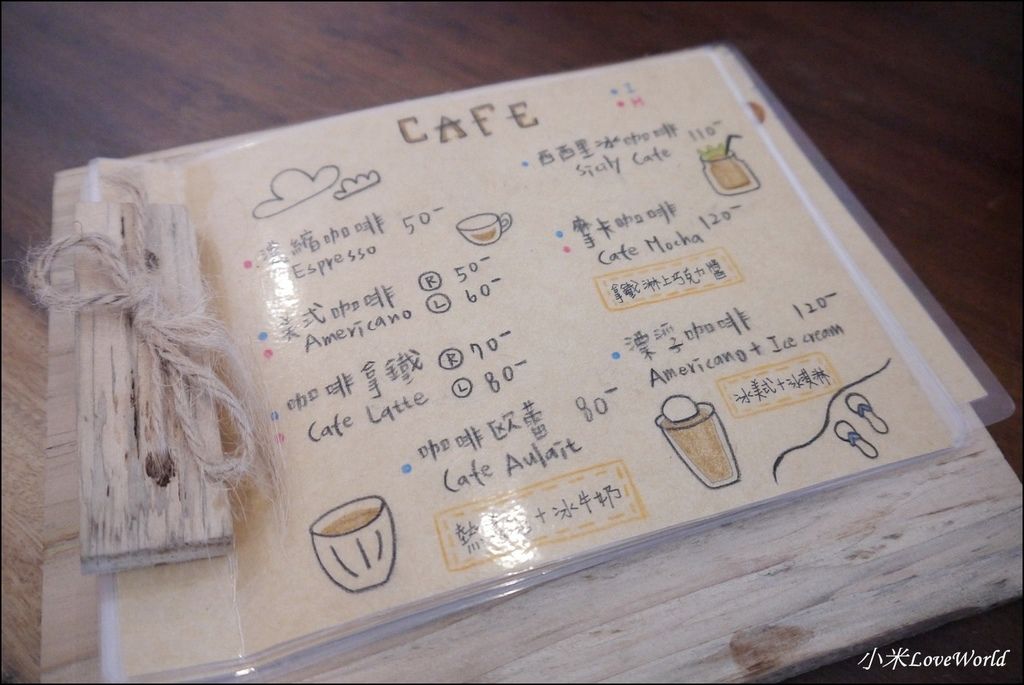 CAFE
I
H
濃縮咖啡 50-
Espresso
美式咖啡 Ⓡ 50-
Americano Ⓛ 60-
咖啡拿鐵 Ⓡ 70-
Cafe Latte Ⓛ 80-
咖啡欧蕾 80-
Cafe Aulait
熱 + 冰牛奶
西西里冰咖啡 110-
Sicily Cafe
摩卡咖啡 120-
Cafe Mocha
拿鐵淋上巧克力醬
漂浮咖啡 120-
Americano + Ice cream
冰美式+冰淇淋
小米LoveWorld